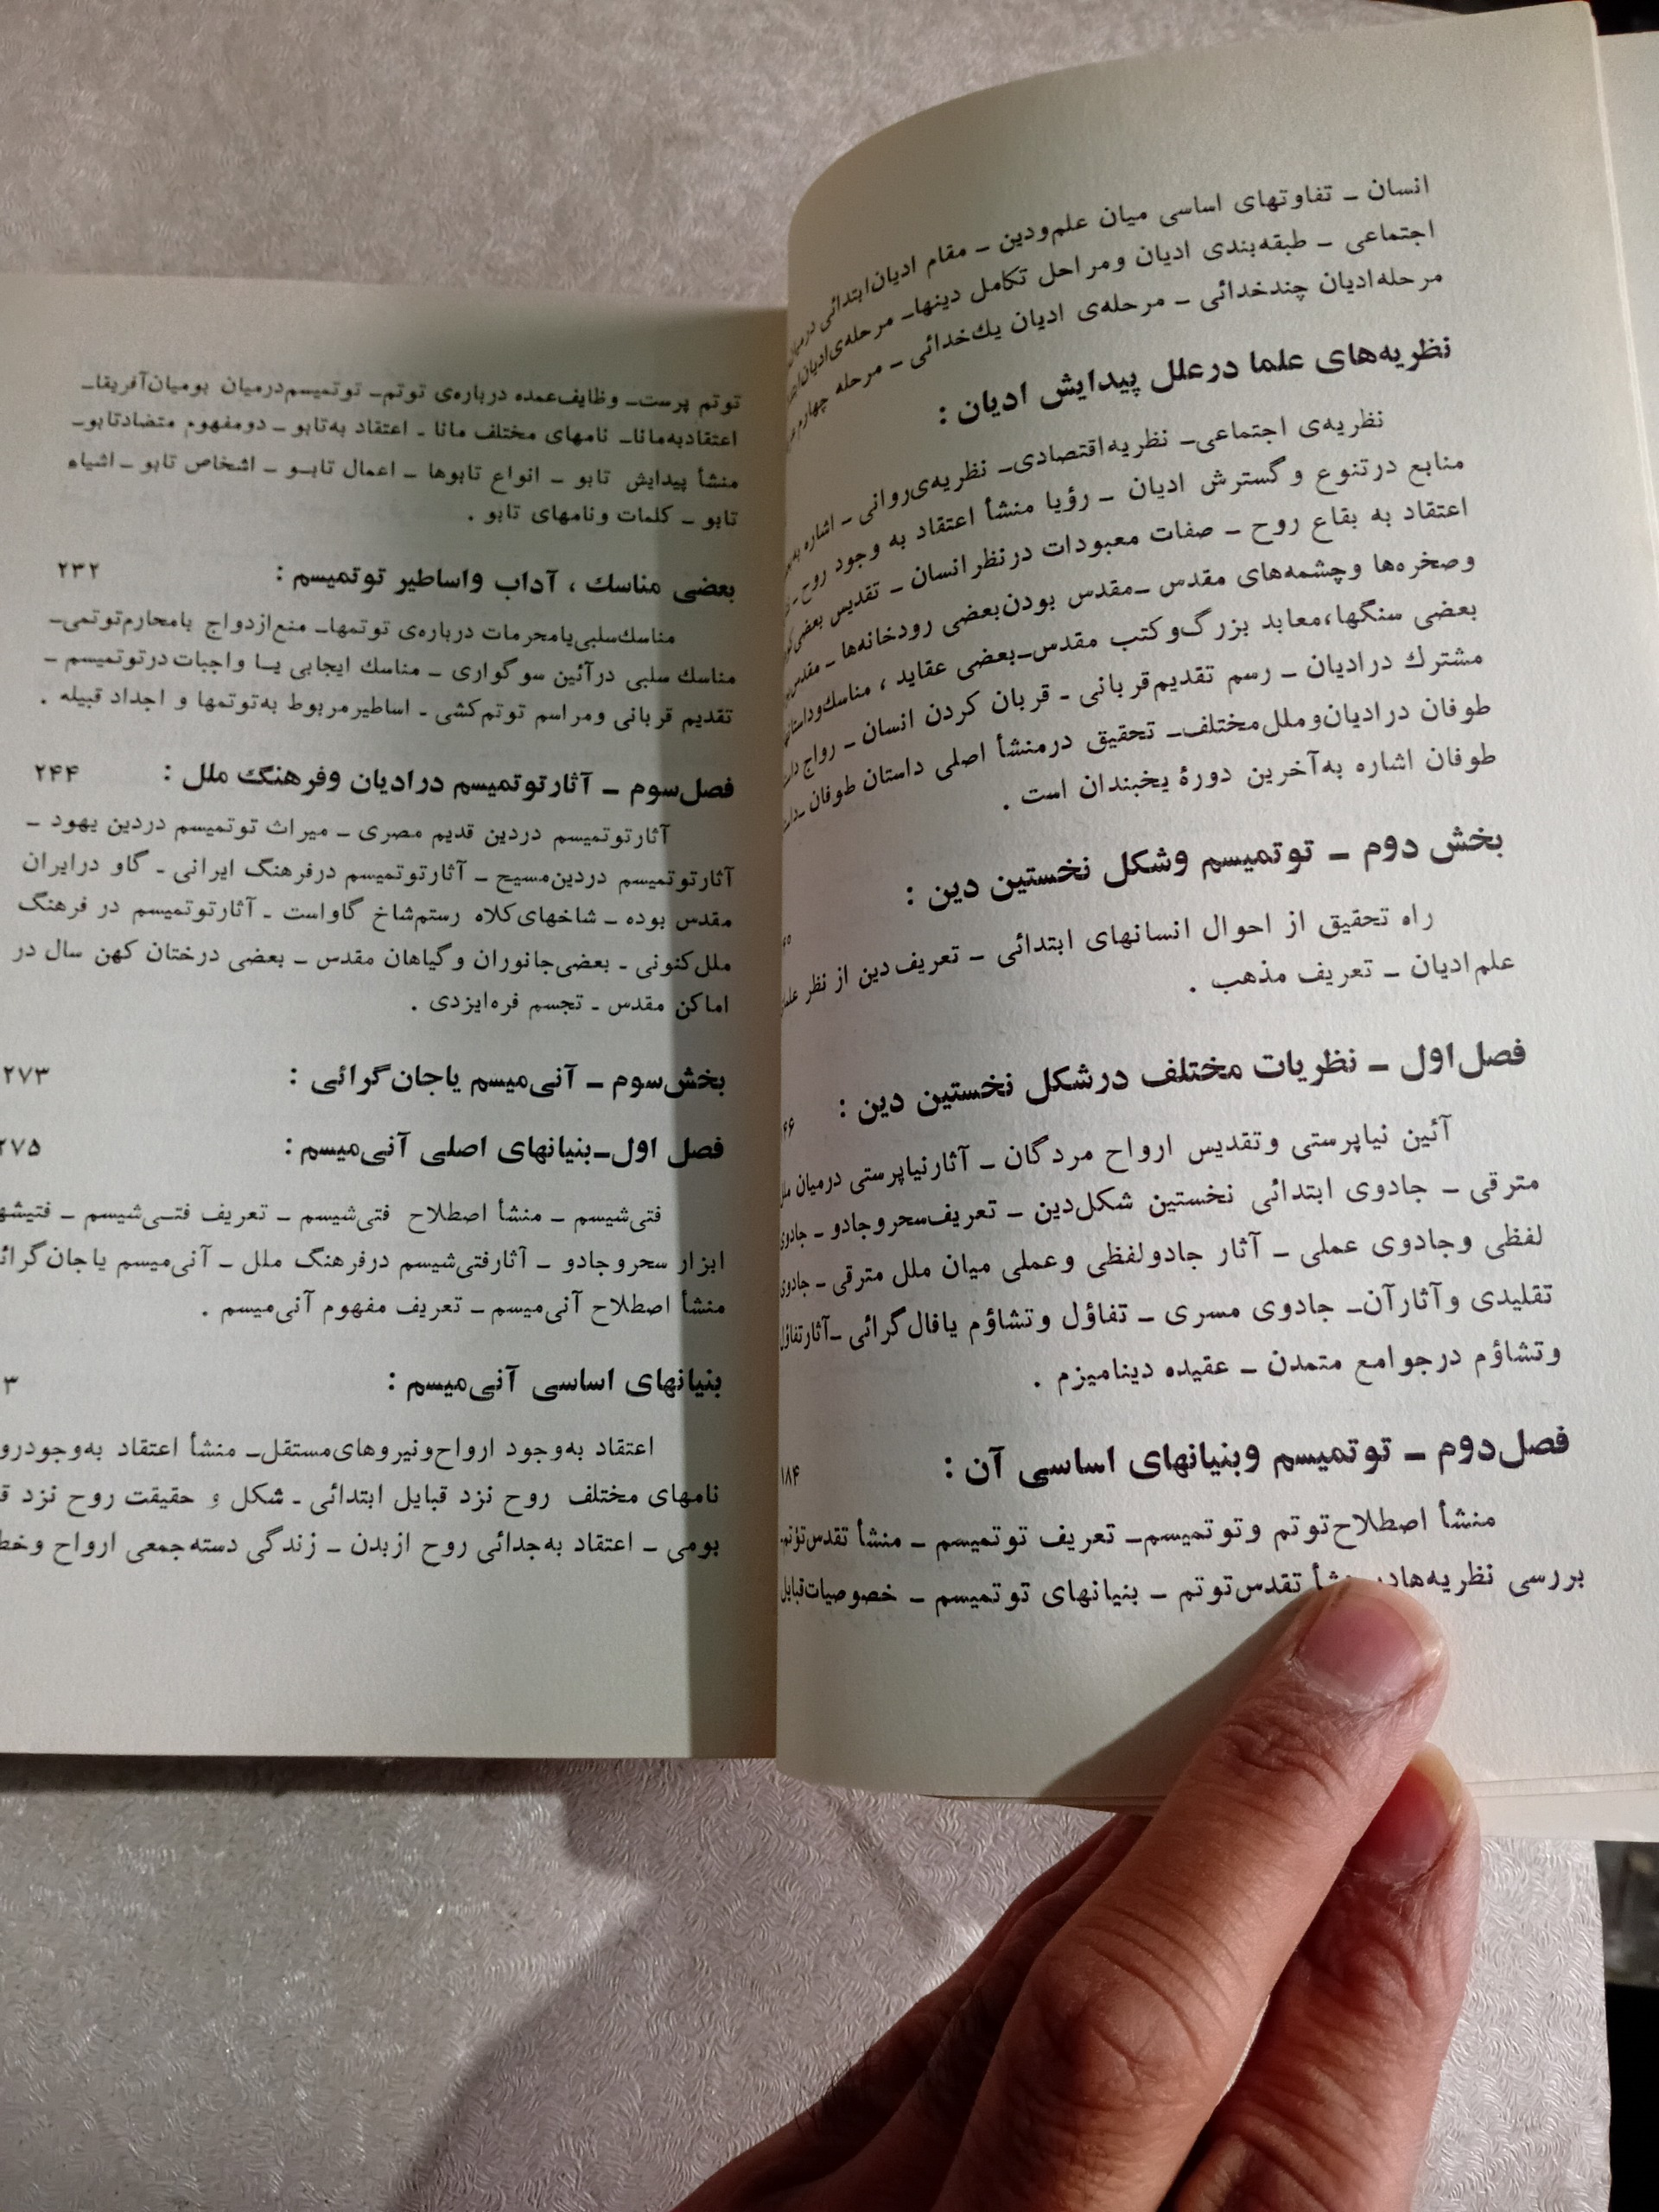 انسان ـ تفاوتهای اساسی میان علم‌ودین ـ مقام ادیان‌ابتدائی درمیان
اجتماعی ـ طبقه‌بندی ادیان ومراحل تکامل دینها ـ مرحله‌ی‌ادیان
مرحله‌ادیان چندخدائی ـ مرحله‌ی ادیان یك‌خدائی ـ مرحله چهارم
نظریه‌های علما درعلل پیدایش ادیان :
نظریه‌ی اجتماعی ـ نظریه‌اقتصادی ـ نظریه‌ی‌روانی ـ اشاره
منابع درتنوع وگسترش ادیان ـ رؤیا منشأ اعتقاد به وجود روح ـ
اعتقاد به بقاع روح ـ صفات معبودات درنظرانسان ـ تقدیس بعضی
وصخره‌ها وچشمه‌های مقدس ـ مقدس بودن‌بعضی رودخانه‌ها ـ
بعضی سنگها،معابد بزرگ‌وکتب مقدس ـ بعضی عقاید ، مناسك‌وداستانها
مشترك درادیان ـ رسم تقدیم‌قربانی ـ قربان کردن انسان ـ رواج
طوفان درادیان‌وملل‌مختلف ـ تحقیق درمنشأ اصلی داستان طوفان ـ
طوفان اشاره به‌آخرین دورۀ یخبندان است .
بخش دوم ـ توتمیسم وشکل نخستین دین :
راه تحقیق از احوال انسانهای ابتدائی ـ تعریف‌دین از نظر علمای
علم‌ادیان ـ تعریف مذهب .
فصل‌اول ـ نظریات مختلف درشکل نخستین دین :
آئین نیاپرستی وتقدیس ارواح مردگان ـ آثارنیاپرستی درمیان
مترقی ـ جادوی ابتدائی نخستین شکل‌دین ـ تعریف‌سحروجادو ـ جادوی
لفظی وجادوی عملی ـ آثار جادولفظی وعملی میان ملل مترقی ـ جادوی
تقلیدی وآثارآن ـ جادوی مسری ـ تفاؤل وتشاؤم یافال‌گرائی ـ آثارتفاؤل
وتشاؤم درجوامع متمدن ـ عقیده دینامیزم .
فصل‌دوم ـ توتمیسم وبنیانهای اساسی آن : ۱۸۴
منشأ اصطلاح‌توتم وتوتمیسم ـ تعریف توتمیسم ـ منشأ تقدس‌توتم
بررسی نظریه‌ها تقدس‌توتم ـ بنیانهای توتمیسم ـ خصوصیات‌قبایل
توتم پرست ـ وظایف‌عمده درباره‌ی توتم ـ توتمیسم‌درمیان بومیان‌آفریقا ـ
اعتقادبه‌مانا ـ نامهای مختلف مانا ـ اعتقاد به‌تابو ـ دومفهوم متضادتابو ـ
منشأ پیدایش تابو ـ انواع تابوها ـ اعمال تابو ـ اشخاص تابو ـ اشیاء
تابو ـ کلمات ونامهای تابو .
بعضی مناسك ، آداب واساطیر توتمیسم : ۲۳۲
مناسك‌سلبی‌یامحرمات درباره‌ی توتمها ـ منع‌ازدواج بامحارم‌توتمی ـ
مناسك سلبی درآئین سوگواری ـ مناسك ایجابی یا واجبات درتوتمیسم ـ
تقدیم قربانی ومراسم توتم‌کشی ـ اساطیرمربوط به‌توتمها و اجداد قبیله .
فصل‌سوم ـ آثارتوتمیسم درادیان وفرهنگ ملل : ۲۴۴
آثارتوتمیسم دردین قدیم مصری ـ میراث توتمیسم دردین یهود ـ
آثارتوتمیسم دردین‌مسیح ـ آثارتوتمیسم درفرهنگ ایرانی ـ گاو درایران
مقدس بوده ـ شاخهای‌کلاه رستم‌شاخ گاواست ـ آثارتوتمیسم در فرهنگ
ملل‌کنونی ـ بعضی‌جانوران وگیاهان مقدس ـ بعضی درختان کهن سال در
اماکن مقدس ـ تجسم فره‌ایزدی .
بخش‌سوم ـ آنی‌میسم یاجان‌گرائی : ۲۷۳
فصل اول ـ بنیانهای اصلی آنی‌میسم : ۲۷۵
فتی‌شیسم ـ منشأ اصطلاح فتی‌شیسم ـ تعریف فتی‌شیسم ـ
ابزار سحروجادو ـ آثارفتی‌شیسم درفرهنگ ملل ـ آنی‌میسم یاجان‌گرائی
منشأ اصطلاح آنی‌میسم ـ تعریف مفهوم آنی‌میسم .
بنیانهای اساسی آنی‌میسم :
اعتقاد به‌وجود ارواح‌ونیروهای‌مستقل ـ منشأ اعتقاد
نامهای مختلف روح نزد قبایل ابتدائی ـ شکل و حقیقت روح نزد
بومی ـ اعتقاد به‌جدائی روح ازبدن ـ زندگی دسته‌جمعی ارواح